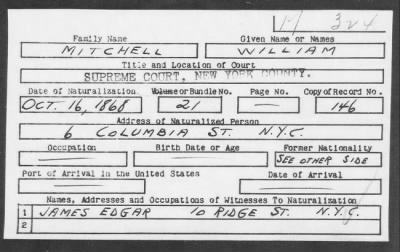 17 324
Family Name Given Name or Names
MITCHELL WILLIAM
Title and Location of Court
SUPREME COURT, NEW YORK COUNTY.
Date of Naturalization Volume or Bundle No. Page No. Copy of Record No.
OCT. 16, 1868 21 — 146
Address of Naturalized Person
6 COLUMBIA ST. N.Y.C.
Occupation Birth Date or Age Former Nationality
— — SEE OTHER SIDE
Port of Arrival in the United States Date of Arrival
— —
Names, Addresses and Occupations of Witnesses To Naturalization
1 JAMES EDGAR 10 RIDGE ST. N.Y.C.
2